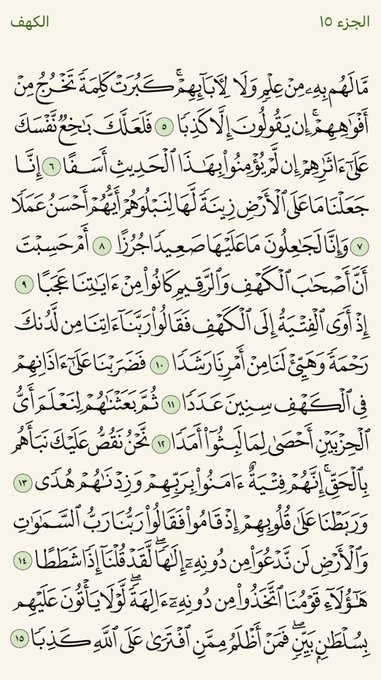 الجزء ١٥
الكهف
مَّا لَهُم بِهِۦ مِنْ عِلْمٍ وَلَا لِأَبَآئِهِمْۚ كَبُرَتْ كَلِمَةً تَخْرُجُ مِنْ
أَفْوَٰهِهِمْۚ إِن يَقُولُونَ إِلَّا كَذِبًا ٥ فَلَعَلَّكَ بَٰخِعٌ نَّفْسَكَ
عَلَىٰٓ ءَاثَٰرِهِمْ إِن لَّمْ يُؤْمِنُوا۟ بِهَٰذَا ٱلْحَدِيثِ أَسَفًا ٦ إِنَّا
جَعَلْنَا مَا عَلَى ٱلْأَرْضِ زِينَةً لَّهَا لِنَبْلُوَهُمْ أَيُّهُمْ أَحْسَنُ عَمَلًا
٧ وَإِنَّا لَجَٰعِلُونَ مَا عَلَيْهَا صَعِيدًا جُرُزًا ٨ أَمْ حَسِبْتَ
أَنَّ أَصْحَٰبَ ٱلْكَهْفِ وَٱلرَّقِيمِ كَانُوا۟ مِنْ ءَايَٰتِنَا عَجَبًا ٩
إِذْ أَوَى ٱلْفِتْيَةُ إِلَى ٱلْكَهْفِ فَقَالُوا۟ رَبَّنَآ ءَاتِنَا مِن لَّدُنكَ
رَحْمَةً وَهَيِّئْ لَنَا مِنْ أَمْرِنَا رَشَدًا ١٠ فَضَرَبْنَا عَلَىٰٓ ءَاذَانِهِمْ
فِى ٱلْكَهْفِ سِنِينَ عَدَدًا ١١ ثُمَّ بَعَثْنَٰهُمْ لِنَعْلَمَ أَىُّ
ٱلْحِزْبَيْنِ أَحْصَىٰ لِمَا لَبِثُوٓا۟ أَمَدًا ١٢ نَّحْنُ نَقُصُّ عَلَيْكَ نَبَأَهُم
بِٱلْحَقِّۚ إِنَّهُمْ فِتْيَةٌ ءَامَنُوا۟ بِرَبِّهِمْ وَزِدْنَٰهُمْ هُدًى ١٣
وَرَبَطْنَا عَلَىٰ قُلُوبِهِمْ إِذْ قَامُوا۟ فَقَالُوا۟ رَبُّنَا رَبُّ ٱلسَّمَٰوَٰتِ
وَٱلْأَرْضِ لَن نَّدْعُوَا۟ مِن دُونِهِۦٓ إِلَٰهًاۖ لَّقَدْ قُلْنَآ إِذًا شَطَطًا ١٤
هَٰٓؤُلَآءِ قَوْمُنَا ٱتَّخَذُوا۟ مِن دُونِهِۦٓ ءَالِهَةًۖ لَّوْلَا يَأْتُونَ عَلَيْهِم
بِسُلْطَٰنٍۭ بَيِّنٍۖ فَمَنْ أَظْلَمُ مِمَّنِ ٱفْتَرَىٰ عَلَى ٱللَّهِ كَذِبًا ١٥